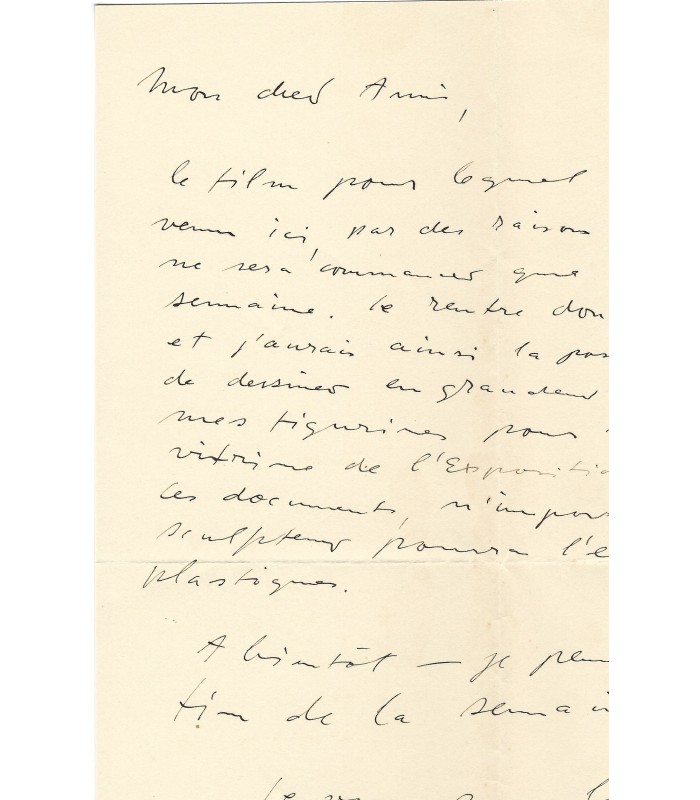 Mon cher Ami,
le film pour lequel
venu ici, par des raisons
ne sera commancer que
semaine. Je rentre don
et j'aurais ainsi la pos
de dessiner en grandeur
mes figurines pour
vitrine de l'Expositio
ces documents, n'impor
sculpteur pourra l'e
plastiques.
A bientôt — je pen
fin de la semain
Je